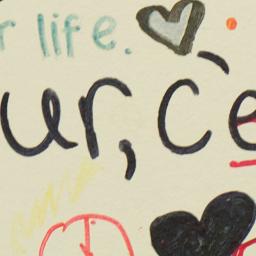 r life.
ur, c'e